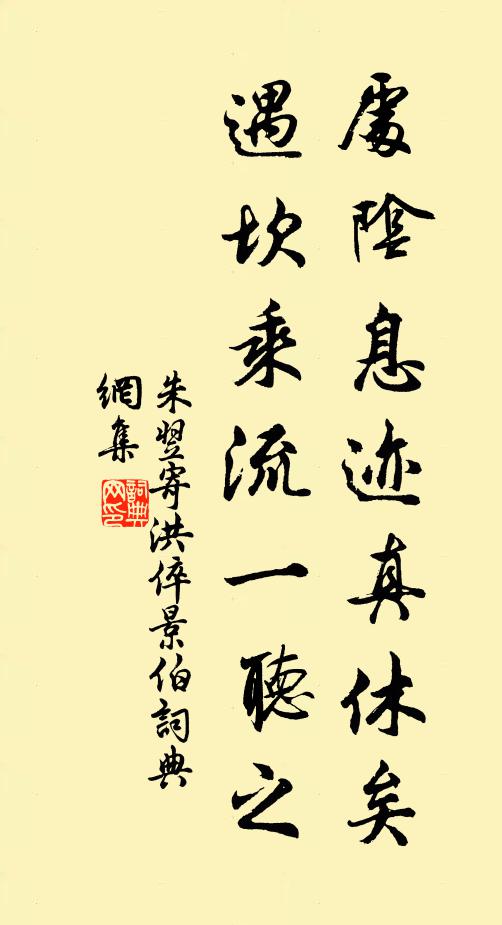 處陰息迹真休矣
遇坎乘流一聽之
朱翌寄洪倅景伯詞典
網集
詞典網印